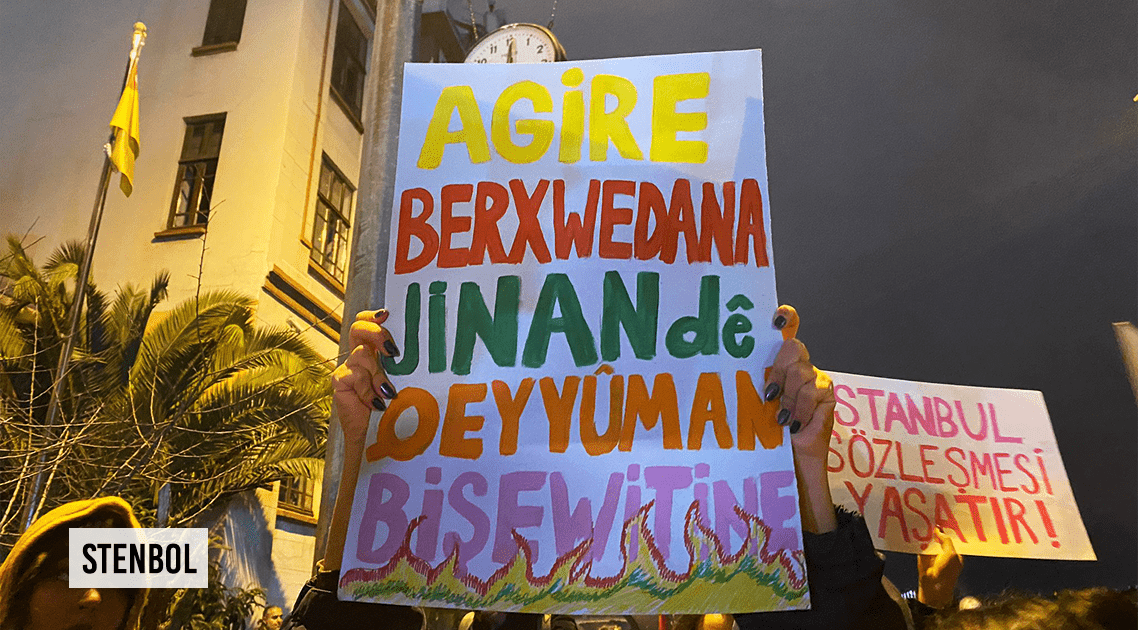 AGiRE
BERXWEDANA
JiNAN dê
QEYYÛMAN
BiŞEWiTiNE
STANBUL
SÖZLEŞMESİ
YAŞATIR!
STENBOL